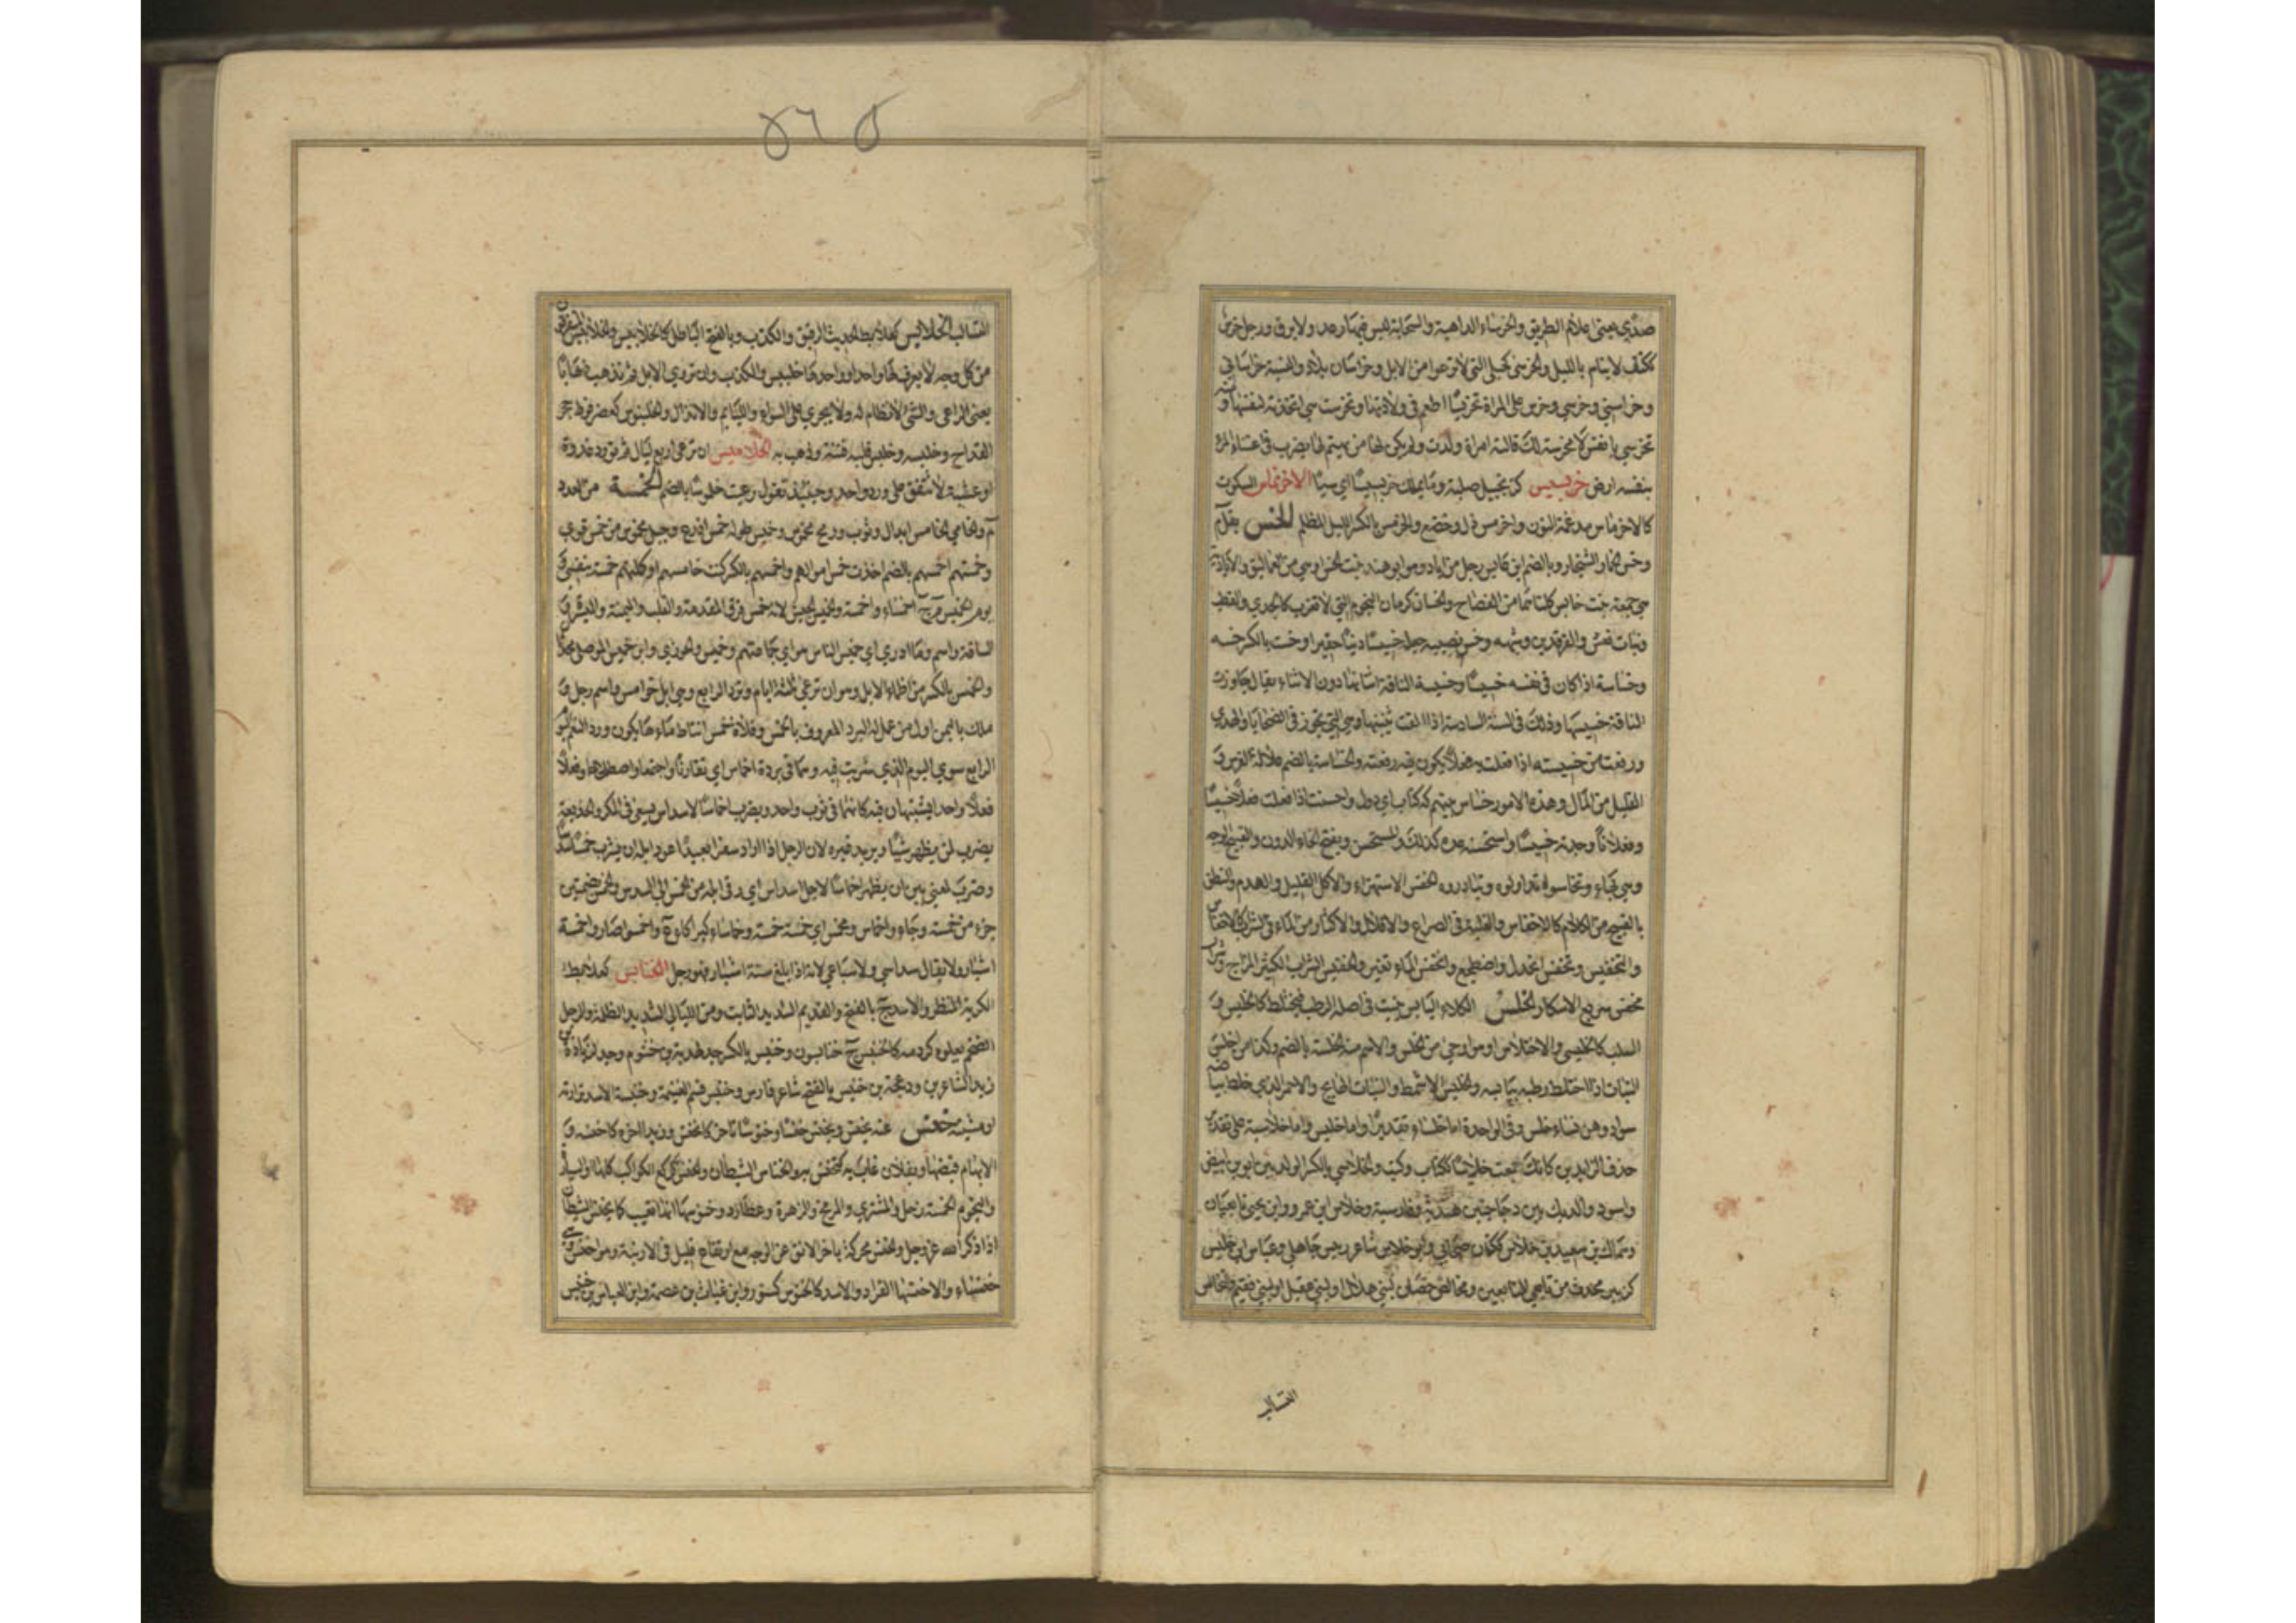 صدّي يعني اعلام الطريق والخرساء الداهية والسحابة ليس فيها رعد ولا برق ورجل خرس
ككتف لا ينام بالليل والخرسى كحبلى التي لا ترغو من الابل وخراسان بلاد والنسبة خراساني
وخراسني وخرسي وخرس على المراة تخريسا اطعم في ولادتها وتخرست هي اتخذته لنفسها ومنه
تخرسي يا نفس لا مخرسة لك قالته امراة ولدت ولم يكن لها من يهتم لها يضرب في اعتناء المرء
بنفسه ارض خربسيس كزنجبيل صلبة وما يملك خربسيسا اي شيئا الاخرنماس السكوت
كالاخرماس مدغمة النون واخرمس ذل وخضع والخرمس بالكسر الليل المظلم الخس بقل م
وخس الحمار الشنجار وبالضم ابن حابس رجل من اياد وهو ابو هند بنت الخس او هي من العماليق والايادية
هي جمعة بنت حابس كلتاهما من الفصاح والخسان كرمان النجوم التي لا تغرب كالجدي والقطب
وبنات نعش والفرقدين وشبهه وخس نصيبه جعله خسيسا دنيا حقيرا وخست بالكسر خسة
وخساسة اذا كان في نفسه خسيسا وخسيسة الناقة اسنانها دون الاثناء يقال جاوزت
الناقة خسيستها وذلك في السنة السادسة اذا القت ثنيتها وهي التي تجوز في الضحايا والهدي
ورفعت من خسيسته اذا فعلت به فعلا يكون فيه رفعته والخساسة بالضم علالة الفرس و
القليل من المال وهذه الامور خساس بينهم ككتاب اي دول واخسست اذا فعلت فعلا خسيسا
وفعلانا وجدته خسيسا واستخسه عده كذلك والمستخس وبفتح الخاء الدون والقبيح الوجه
وهي بهاء وتخاسوه تداولوه وتبادروه الخفس الاستهزاء والاكل القليل والهدم والنطق
بالقبيح من الكلام كالاخفاس والغلبة في الصراع والاقلال والاكثار من الماء في الشراب كالاخفاس
والتخفيس وتخفس انجدل واضطجع وانخفس الماء تغير والخفيس الشراب الكثير المزاج وشراب
مخفس سريع الاسكار الخلس الكلاء اليابس نبت في اصله الرطب فيختلط كالخليس و
السلب كالخليسى والاختلاس او هو اوحى من الخلس والاسم منه الخلسة بالضم وكذا من اخلس
النبات اذا اختلط رطبه بيابسه والخليس الاشمط والنبات الهائج والاحمر الذي خالط بياضه
سواد وهن نساء خلس وفي الواحدة اما خلساء تقديرا واما خليس واما خلاسية على تقدير
حذف الزايدين كانك جمعت خلاسا ككتاب وكتب والخلاسي بالكسر الولد بين ابوين ابيض
واسود والديك بين دجاجتين هندية وفارسية وخلاس ابن عمرو وابن يحيى تابعيان
وسماك بن سعيد بن خلاس ككتان صحابي وابو خلاس شاعر رييس جاهلي وعباس ابن خليس
كزبير محدث من تابعي التابعين ومخالس حصان لبني هلال او لبني عقيل او لبني فقيم والتخالس
التسالب
التسالب الخلابيس كعلابط الحديث الرقيق والكذب وبالفتح الباطل كالخلابيس والخلابيس المتفرقون
من كل وجه لا يعرف لها واحد او واحدها خلبيس والكذب وان تروي الابل ثم تذهب ذهابا
يعني الراعي والشئ لا نظام له ولا يجري على استواء والليام والانذال والخلبوس كعضرفوط حجر
القداح وخلبسه وخلبس قلبه فتنه وذهب به الخلاميس ان ترعى اربع ليال ثم تورد غدوة
او عشية لا تتفق على ورد واحد وحينئذ تقول رعيت خلموسا بالضم الخمسة من العدد
م والخامي الخامس ابدال وثوب ورمح مخموس وخميس طوله خمس اذرع وحبل مخموس من خمس قوى
وخمستهم اخمسهم بالضم اخذت خمس اموالهم واخمسهم بالكسر كنت خامسهم او كملتهم خمسة بنفسي و
يوم الخميس م ج اخمساء واخمسة والخميس الجيش لانه خمس فرق المقدمة والقلب والميمنة والميسرة و
الساقة واسم وما ادري اي خميس الناس هو اي جماعتهم وخميس والحوزي وابن خميس الموصلي محدثان
والخمس بالكسر من اظماء الابل وهو ان ترعى ثلثة ايام وترد الرابع وهي ابل خوامس واسم رجل و
ملك باليمن اول من عمل له البرد المعروف بالخمس وفلاة خمس انتاط ماءها حتى يكون ورد النعم اليوم
الرابع سوى اليوم الذي شربت فيه وهما في بردة اخماس اي تقاربا واجتمعا واصطلحا او فعلا
فعلا واحدا يشتبهان فيه كانهما في ثوب واحد ويضرب اخماسا لاسداس يسعى في المكر والخديعة
يضرب لمن يظهر شيئا ويريد غيره لان الرجل اذا اراد سفرا بعيدا عود ابله ان يشرب خمسا سدسا
وضرب بمعنى بين ان يظهر اخماسا لاجل اسداس اي رقى ابله من الخمس الى السدس والخمس بضمتين
جزء من خمسة وجاءوا خماس ومخمس اي خمسة خمسة وخماساء كبراكاء ع واخمسوا صاروا خمسة
اشبار ولا يقال سداسي ولا سباعي لانه اذا بلغ ستة اشبار فهو رجل الخنابس كعلابط
الكريه المنظر والاسد ج بالفتح والقديم الشديد الثابت ومن الليالي الشديد الظلمة والرجل
الضخم يعلوه كردمه كالخنبس ج خنابسون وخنبس بالكسر جد لهدبة بن خشرم وجد لزيادة بن
زيد الشاعرين ودعجة بن خنبس بالفتح شاعر فارس وخنبس قسم الغنيمة وخنبسة الاسد ترارته
او مشيته خنس عنه يخنس ويخنس خنسا وخنوسا تاخر كانخنس وزيدا اخره كاخنسه و
الابهام قبضها وبفلان غاب به كتخنس به والخناس الشيطان والخنس كركع الكواكب كلها او السيارة
والنجوم الخمسة زحل والمشتري والمريخ والزهرة وعطارد وخنوسها انها تغيب كما يخنس الشيطان
اذا ذكر الله عز وجل والخنس محركة تاخر الانف عن الوجه مع ارتفاع قليل في الارنبة وهو اخنس وهي
خنساء والاخنس القراد والاسد كالخنوس كسنور وابن غياث بن عصمة وابن العباس بن خنيس